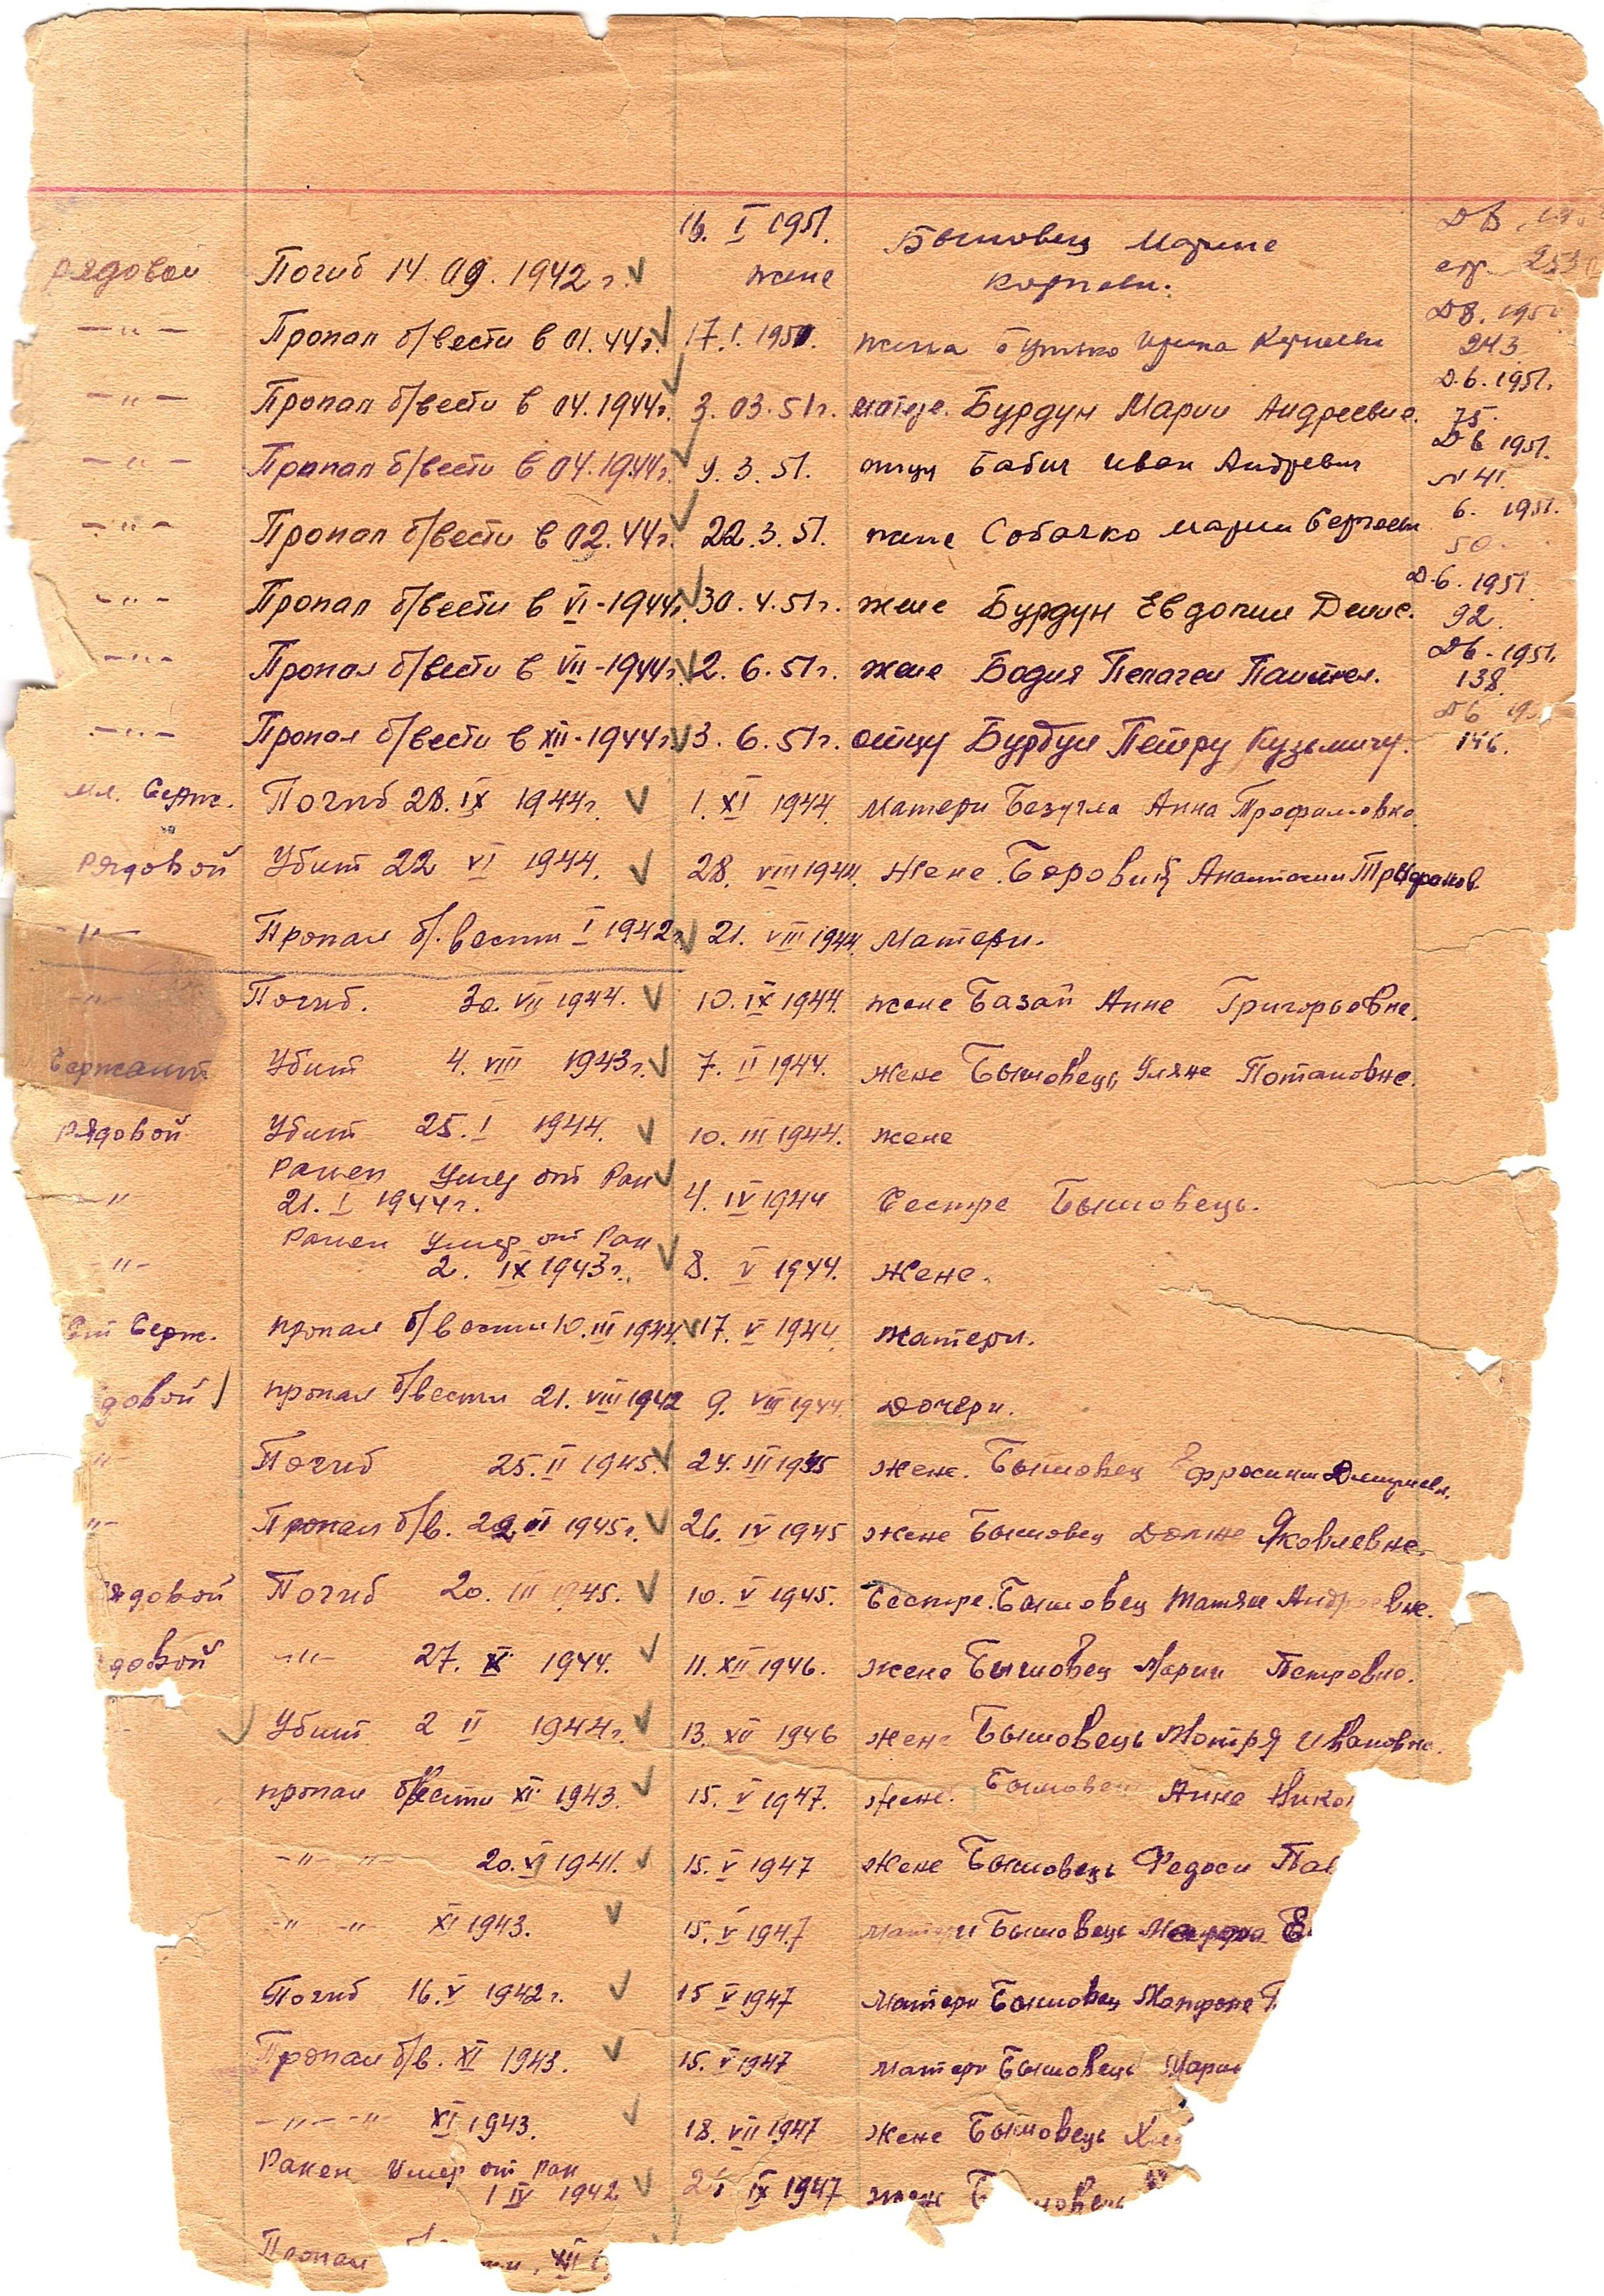 16. I 1951. Бышовец Марине
рядовой Погиб 14.09.1942 г. жене
—"— Пропал б/вести в 01.44г. 17.1.1950. жена Ирина
243
—"— Пропал б/вести в 04.1944г. 3.03.51г. матере. Бурдун Марии Андреевне. Д.6.1951.
75.
—"— Пропал б/вести в 04.1944г. 9.3.51. отцу Бабич Иван Андревич Д6 1951.
41.
—"— Пропал б/вести в 02.44г. 22.3.51. жене Собачко Марии 6. 1951.
50.
—"— Пропал б/вести в VI-1944г. 30.4.51г. жене Бурдун Евдокии Денис. Д.6.1951.
92.
—"— Пропал б/вести в VII-1944г. 2.6.51г. жене Бодня Пелагеи Д6-1951.
138.
—"— Пропал б/вести в XII-1944г. 3.6.51г. отцу Бурдун Петру Кузьмичу. Д6
146.
мл. Серж. Погиб 28.IX 1944г. 1.XI 1944. Матери Безугла Анна Трофимовна
рядовой Убит 22 VI 1944. 28.VIII 1944. Жене. Боровик Анастасии
—"— Пропал б/.вести I 1942г. 21.VIII 1944. Матери.
—"— Погиб. 30.VII 1944. 10.IX 1944. жене Базан Анне Григорьевне.
Сержант Убит 4.VIII 1943г. 7.II 1944. Жене Бышовець Уляне Потаповне.
рядовой Убит 25.I 1944. 10.III 1944. жене
Ранен Умер от Ран
—" 21.I 1944г. 4.IV 1944 Сестре Бышовець.
Ранен Умер от Ран
—"— 2.IX 1943г. 8.V 1944. Жене.
Серж. пропал б/вести 10.III 1944. 17.V 1944. Матери.
довой пропал б/вести 21.VIII 1942 9.VIII 1944. Дочери.
"— Погиб 25.II 1945. 24.III 1945 Жене. Бышовец Ефросинии
"— Пропал б/в. 1945г. 26.IV 1945 Жене Бышовец Яковлевне.
рядовой Погиб 20.III 1945. 10.V 1945. Сестре. Бышовец Татяне Андреевне.
довой —"— 27.X 1944. 11.XII 1946. жене Бышовец Марии Петровне.
Убит 2 II 1944г. 13.XII 1946 жене Бышовець Мотря Ивановне.
пропал б/вести XI 1943. 15.V 1947. жене. Бышовец Анне Нико
—"— —"— 20. 1941. 15.V 1947 Жене Бышовець Федоси Пав
—"— —"— XI 1943. 15.V 1947 Матери Бышовець
Погиб 16.V 1942г. 15 V 1947 Матери Бышовец
Пропал б/в. XI 1943. 15.V 1947 матери Бышовець Мари
—"— —"— XI 1943. 18.VII 1947 Жене Бышовець
Ранен Умер от ран
1 IV 1942 IX 1947 жене
Пропал XII